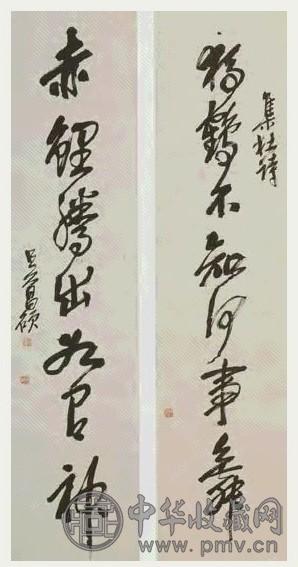 集杜詩
獨鶴不知何事舞
赤鯉騰出如有神
吳昌碩
中华收藏网
www.pmv.cn